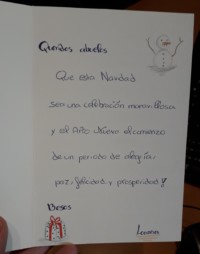 Queridos abuelos
Que esa Navidad
sea una celebración maravillosa
y el Año Nuevo el comienzo
de un periodo de alegría,
paz, felicidad y prosperidad
Besos
Laura